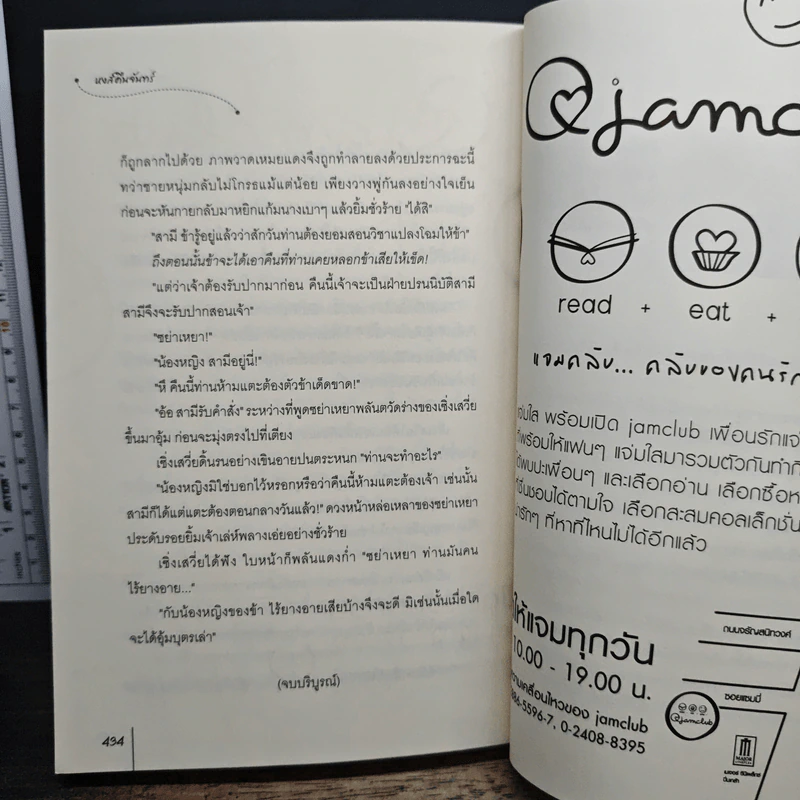 หงส์คืนจันทร์
ก็ถูกลากไปด้วย ภาพวาดเหมยแดงจึงถูกทำลายลงด้วยประการฉะนี้
ทว่าชายหนุ่มกลับไม่โกรธแม้แต่น้อย เพียงวางพู่กันลงอย่างใจเย็น
ก่อนจะหันกายกลับมาหยิกแก้มนางเบาๆ แล้วยิ้มชั่วร้าย "ได้สิ"
"สามี ข้ารู้อยู่แล้วว่าสักวันท่านต้องยอมสอนวิชาแปลงโฉมให้ข้า"
ถึงตอนนั้นข้าจะได้เอาคืนที่ท่านเคยหลอกข้าเสียให้เข็ด!
"แต่ว่าเจ้าต้องรับปากมาก่อน คืนนี้เจ้าจะเป็นฝ่ายปรนนิบัติสามี
สามีจึงจะรับปากสอนเจ้า"
"ซย่าเหยา!"
"น้องหญิง สามีอยู่นี่!"
"หึ คืนนี้ท่านห้ามแตะต้องตัวข้าเด็ดขาด!"
"อ้อ สามีรับคำสั่ง" ระหว่างที่พูดซย่าเหยาพลันตวัดร่างของเซิ่งเสวี่ย
ขึ้นมาอุ้ม ก่อนจะมุ่งตรงไปที่เตียง
เซิ่งเสวี่ยดิ้นรนอย่างเขินอายปนตระหนก "ท่านจะทำอะไร"
"น้องหญิงมิใช่บอกไว้หรอกหรือว่าคืนนี้ห้ามแตะต้องเจ้า เช่นนั้น
สามีก็ได้แต่แตะต้องตอนกลางวันแล้ว!" ดวงหน้าหล่อเหลาของซย่าเหยา
ประดับรอยยิ้มเจ้าเล่ห์พลางเอ่ยอย่างชั่วร้าย
เซิ่งเสวี่ยได้ฟัง ใบหน้าก็พลันแดงก่ำ "ซย่าเหยา ท่านมันคน
ไร้ยางอาย..."
"กับน้องหญิงของข้า ไร้ยางอายเสียบ้างจึงจะดี มิเช่นนั้นเมื่อใด
จะได้อุ้มบุตรเล่า"
(จบบริบูรณ์)
434
jamc
read + eat +
แจมคลับ... คลับของคนรัก
แจ่มใส พร้อมเปิด jamclub เพื่อนรักแจ่
ที่พร้อมให้แฟนๆ แจ่มใสมารวมตัวกันทำกิ
ได้พบปะเพื่อนๆ และเลือกอ่าน เลือกซื้อห
ที่ชื่นชอบได้ตามใจ เลือกสะสมคอลเล็กชั่น
น่ารักๆ ที่หาที่ไหนไม่ได้อีกแล้ว
ให้แจมทุกวัน
10.00 - 19.00 น.
ความเคลื่อนไหวของ jamclub
86-5596-7, 0-2408-8395
ถนนจรัญสนิทวงศ์
ซอยแซมมี่
jamclub
MAJOR
เมเจอร์ ซีนีเพล็กซ์
ปิ่นเกล้า